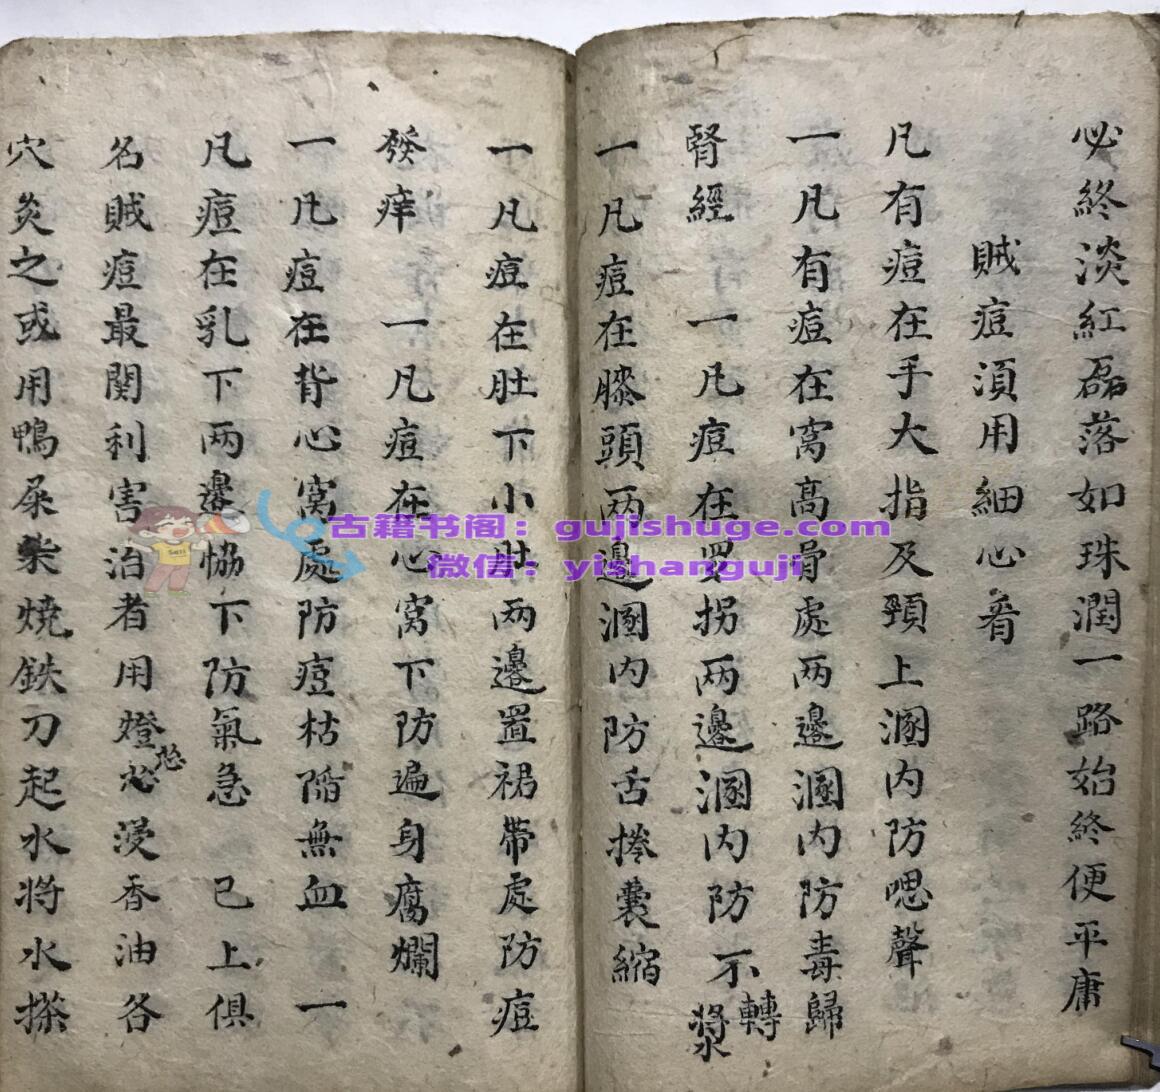 必終淡紅磊落如珠潤一路始終便平庸
賊痘須用細心看
凡有痘在手大指及頸上溷内防嗯聲
一凡有痘在窩高骨處两邊溷内防毒歸
腎經　一凡痘在腳拐两邊溷内防不轉漿水
一凡痘在膝頭两邊溷内防舌捲囊縮
一凡痘在肚下小肚两邊置裙帶處防痘
發痒　一凡痘在心窩下防遍身腐爛
一凡痘在背心窩處防痘枯陷無血一
凡痘在乳下两邊協下防氣急　已上俱
名賊痘最関利害治者用燈芯芯浸香油各
穴灸之或用鴨屎柴燒鉄刀起水将水搽
古籍书阁：gujishuge.com
微信：yishanguji